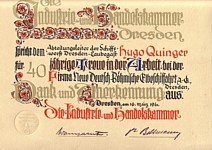 Die Industrie- und Handelskammer
Dresden
spricht dem Abteilungsleiter der Schiff-
werft Dresden-Laubegast Hugo Quinger
für 40 jährige Treue in der Arbeit bei der
Firma Neue Deutsch-Böhmische Elbeschiffahrt A.-G.
Dank und Anerkennung aus.
Dresden, am 12. März 194
Die Industrie- und Handelskammer